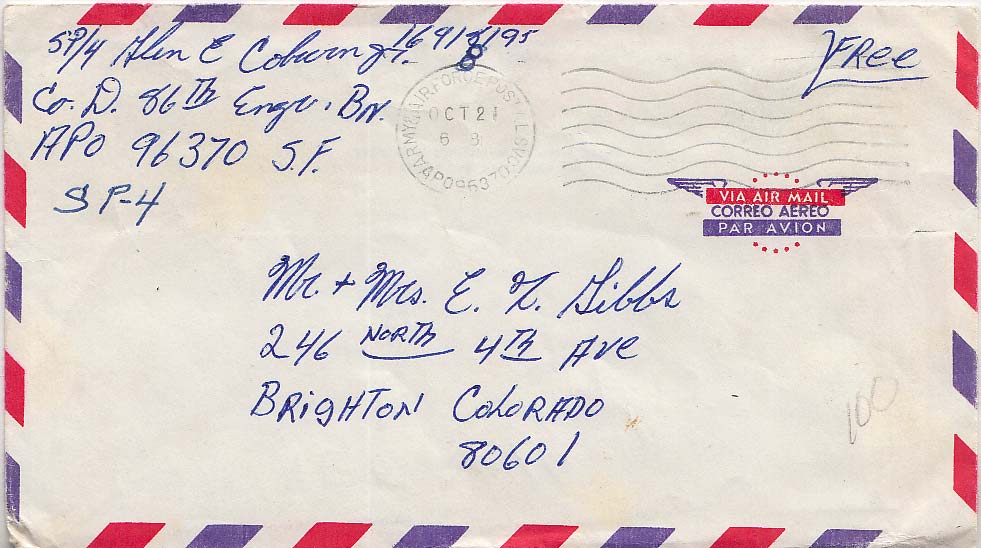 SP/4 Glen E Coburn Jr. 16918195
Co. D. 86TH Engr. BN.
APO 96370 S.F.
SP-4
FREE
ARMY & AIR FORCE POSTAL SVC
OCT 21
6 8
APO 96370
VIA AIR MAIL
CORREO AEREO
PAR AVION
Mr. + Mrs. E. L. Gibbs
246 NORTH 4TH AVE
BRIGHTON COLORADO
80601
100